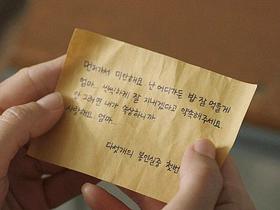 먼저가서 미안해요 난 어디가든 밥 잘 먹을게
엄마... 씩씩하게 잘 지내겠다고 약속해주세요
안 그러면 내가 속상하니까
사랑해요 엄마...
다섯개의 봉인실종 첫번